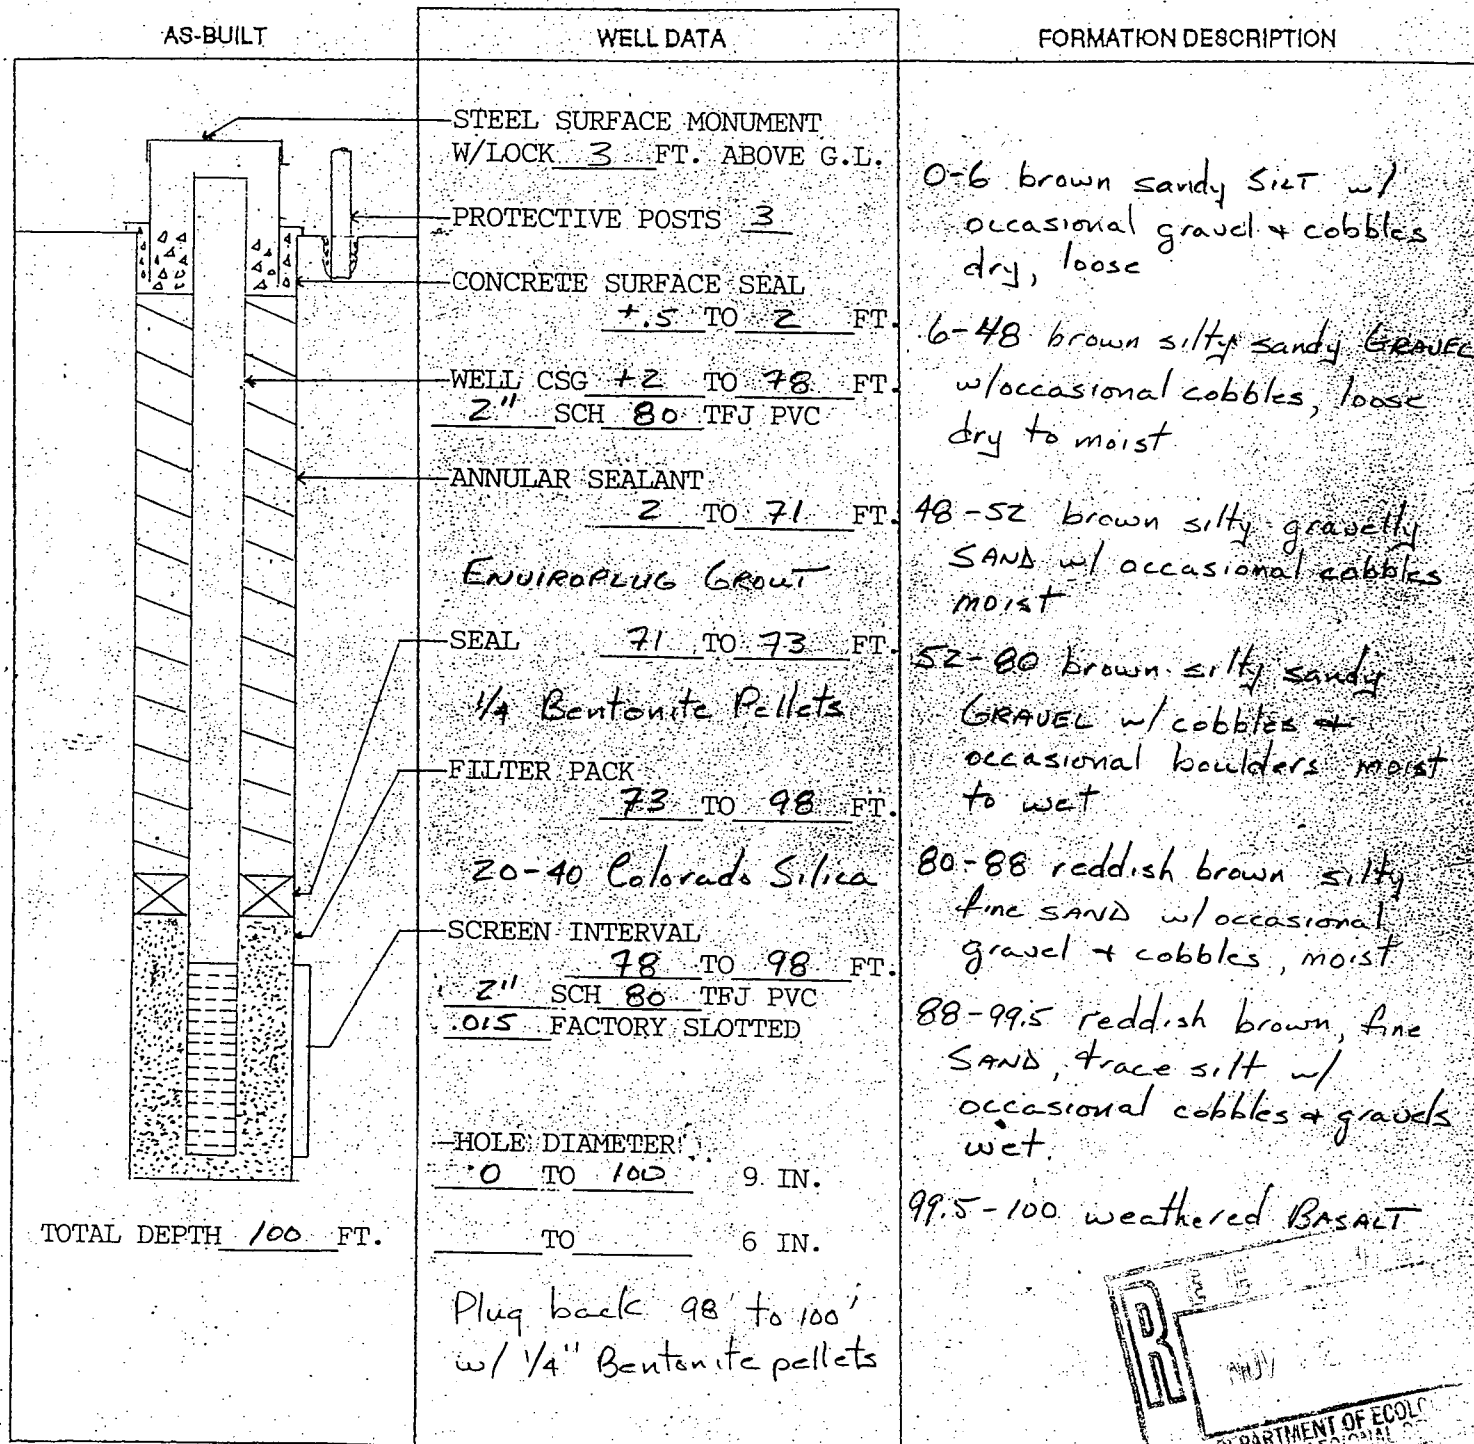 AS-BUILT
WELL DATA
FORMATION DESCRIPTION
STEEL SURFACE MONUMENT
W/LOCK 3 FT. ABOVE G.L.
PROTECTIVE POSTS 3
CONCRETE SURFACE SEAL
+.5 TO 2 FT.
WELL CSG +2 TO 78 FT.
2" SCH 80 TFJ PVC
ANNULAR SEALANT
2 TO 71 FT.
ENVIROPLUG GROUT
SEAL 71 TO 73 FT.
1/4 Bentonite Pellets
FILTER PACK
73 TO 98 FT.
20-40 Colorado Silica
SCREEN INTERVAL
78 TO 98 FT.
2" SCH 80 TFJ PVC
.015 FACTORY SLOTTED
HOLE DIAMETER
0 TO 100 9 IN.
TO 6 IN.
Plug back 98' to 100'
w/ 1/4" Bentonite pellets
0-6 brown sandy SILT w/
occasional gravel + cobbles
dry, loose
6-48 brown silty sandy GRAVEL
w/occasional cobbles, loose
dry to moist
48-52 brown silty gravelly
SAND w/ occasional cobbles
moist
52-80 brown silty sandy
GRAVEL w/ cobbles +
occasional boulders moist
to wet
80-88 reddish brown silty
fine SAND w/occasional
gravel + cobbles, moist
88-99.5 reddish brown, fine
SAND, trace silt w/
occasional cobbles + gravels
wet.
99.5-100 weathered BASALT
TOTAL DEPTH 100 FT.
NOV
DEPARTMENT OF ECOL